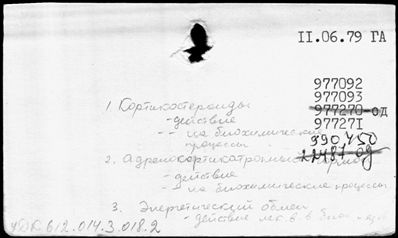 II.06.79 ГА
977092
977093
977270-од
97727I
990450
1. Кортикостероиды
- действие
- - на биохимические
процессы
2. Адренокортикотропный гормон
- действие
- - на биохимические процессы
3. Энергетический обмен
- действие лек. в-в
УДК 612.014.3.018.2